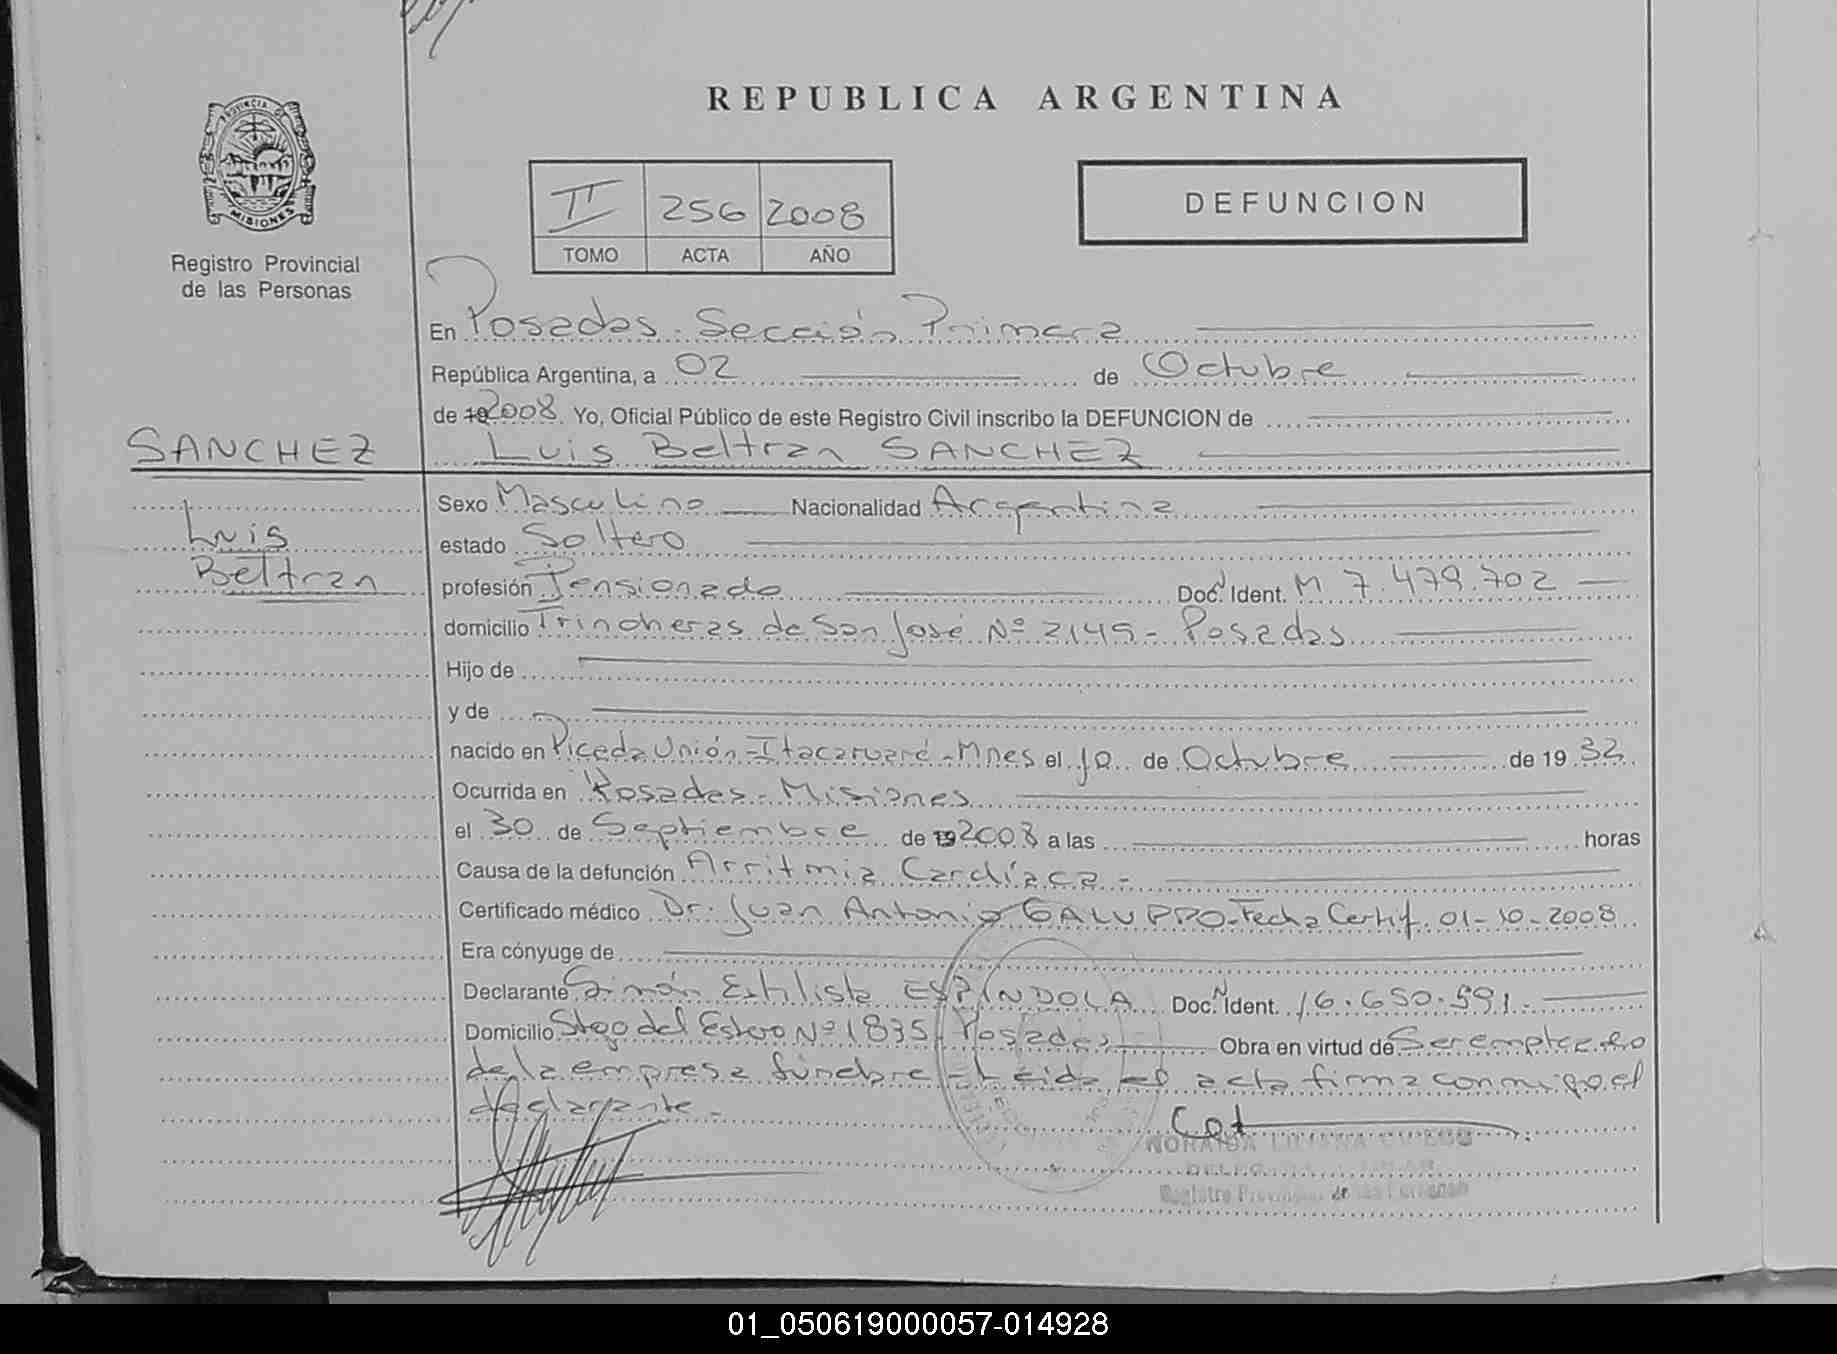 REPUBLICA ARGENTINA
PROVINCIA DE
MISIONES
Registro Provincial
de las Personas
II 256 2008
TOMO ACTA AÑO
DEFUNCION
En Posadas - Sección Primera
República Argentina, a 02 de Octubre
de 19 2008 Yo, Oficial Público de este Registro Civil inscribo la DEFUNCION de
SANCHEZ
Luis Beltran SANCHEZ
Luis
Beltran
Sexo Masculino Nacionalidad Argentina
estado Soltero
profesión Pensionado Doc. N Ident. M 7.479.702
domicilio Trincheras de San José Nº 2149 - Posadas
Hijo de
y de
nacido en Picada Unión - Itacaruaré - Mnes el 10 de Octubre de 19 32
Ocurrida en Posadas - Misiones
el 30 de Septiembre de 19 2008 a las horas
Causa de la defunción Arritmia Cardíaca -
Certificado médico Dr. Juan Antonio GALUPPO - Fecha Certif. 01-10-2008
Era cónyuge de
Declarante Simón ESPINDOLA Doc. N Ident. 16.650.591
Domicilio Stgo del Estero Nº 1835 Posadas Obra en virtud de Ser empleado
de la empresa fúnebre - Leida el acta firma conmigo el
declarante -
Registro Provincial de las Personas
01_050619000057-014928